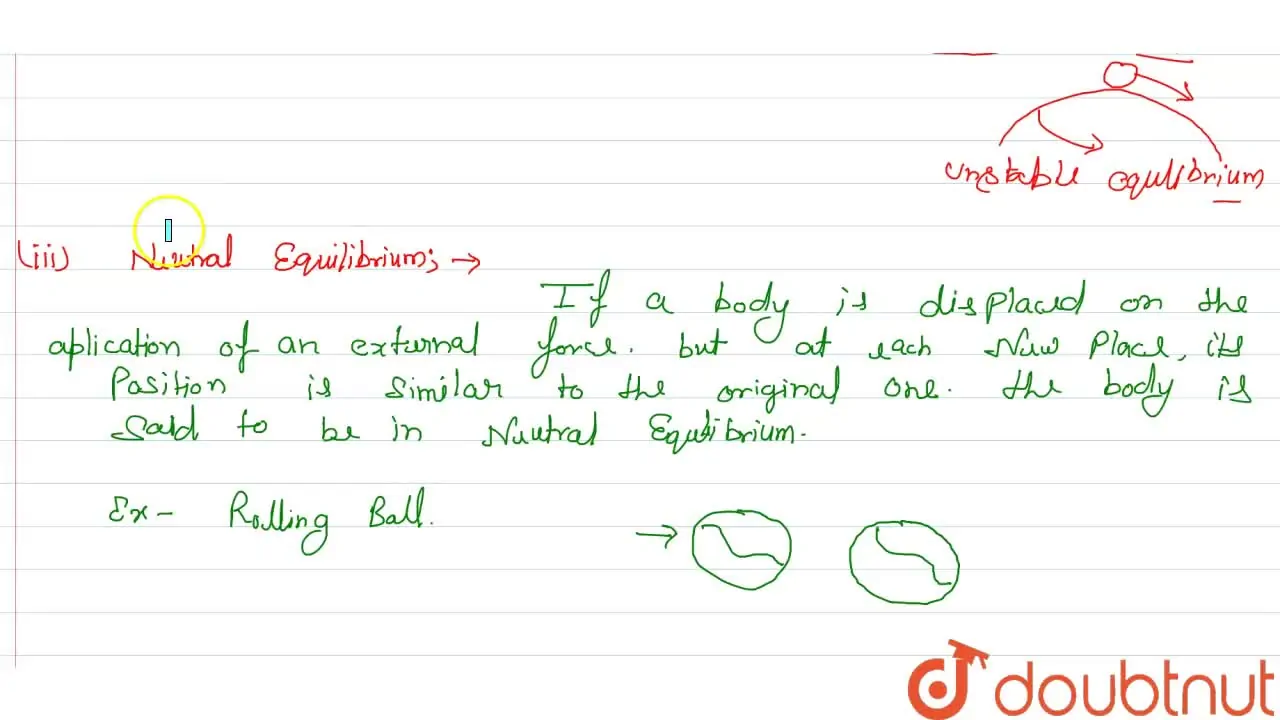 unstable equlibrium
(iii) Nutral Equilibrium; →
If a body is displaced on the
aplication of an external force. but at each New Place, its
Position is similar to the original one. the body is
said to be in Nutral Equlibrium.
Ex- Rolling Ball.
→
doubtnut